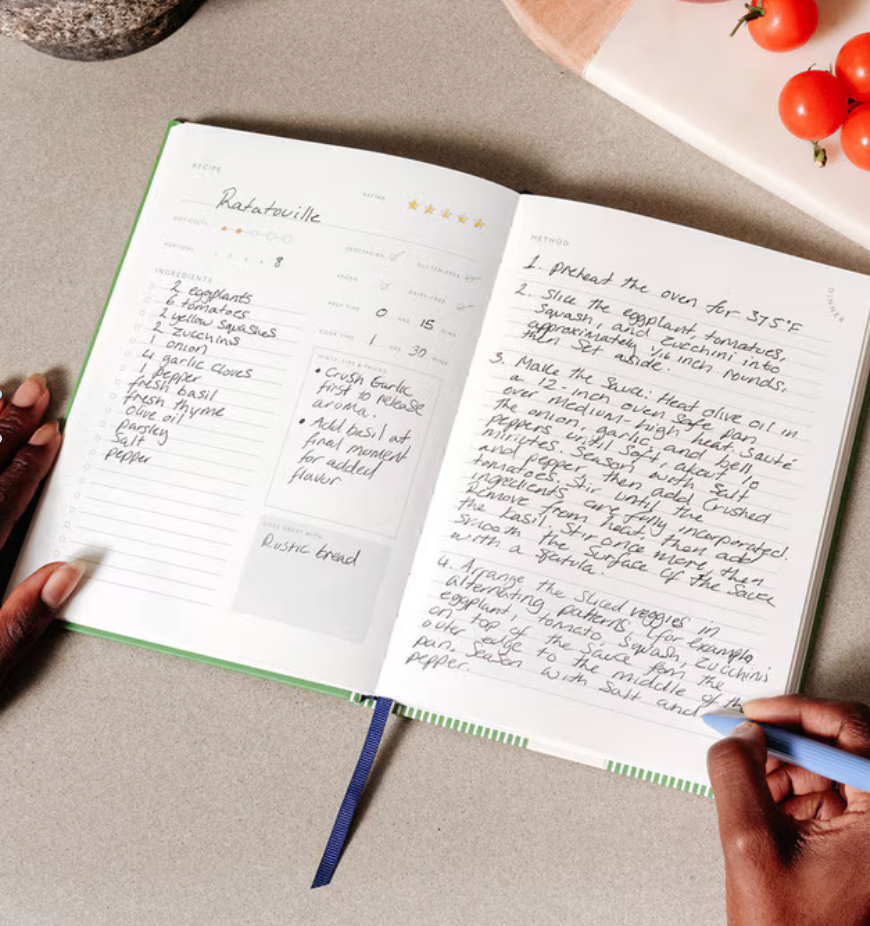 RECIPE
Ratatouille
RATING
DIFFICULTY
PORTIONS
8
VEGETARIAN
GLUTEN-FREE
VEGAN
DAIRY-FREE
PREP TIME 0 HRS 15 MINS
COOK TIME 1 HRS 30 MINS
INGREDIENTS
2 eggplants
6 tomatoes
2 yellow squashes
2 zucchinis
1 onion
4 garlic cloves
1 pepper
fresh basil
fresh thyme
olive oil
parsley
Salt
pepper
HINTS, TIPS & TRICKS
• Crush Garlic
first to release
aroma.
• Add basil at
final moment
for added
flavor
GOES GREAT WITH
Rustic bread
METHOD
DINNER
1. preheat the oven for 375°F
2. Slice the eggplant, tomatoes,
Squash, and zucchini into
approximately 1/16 inch rounds,
then Set aside.
3. Make the Sauce: Heat olive oil in
a 12-inch oven safe pan
over medium-high heat. Sauté
the onion, garlic, and bell
peppers until Soft, about 10
minutes. Season with Salt
and pepper then add crushed
tomatoes. Stir until the
ingredients are fully incorporated.
Remove from heat, then add
the basil. Stir once more, then
Smooth the Surface of the Sauce
with a Spatula.
4. Arrange the Sliced veggies in
alternating patterns, (for example
eggplant, tomato, Squash, zucchini)
on top of the Sauce from the
outer edge to the middle of the
pan. Season with Salt and
pepper.